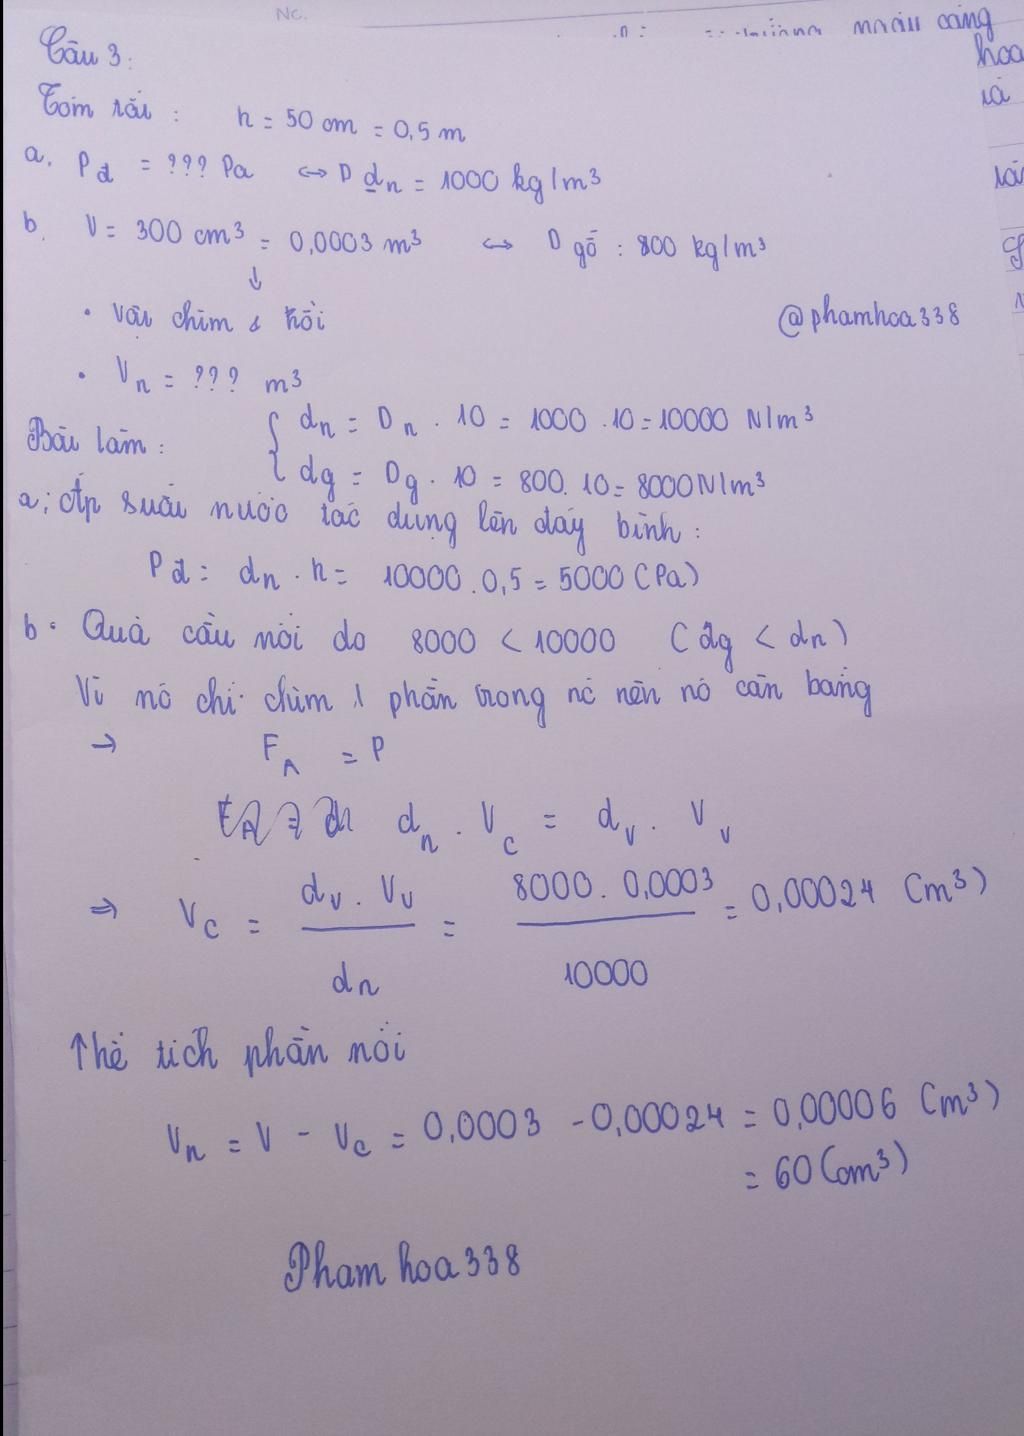 Nc.
nhân công
hoa
là
Câu 3:
Tóm tắt : h = 50 cm = 0,5 m
a. Pđ = ??? Pa ↔ D dn = 1000 kg/m³
b. V = 300 cm³ = 0,0003 m³ ↔ D gỗ : 800 kg/m³
↓
• Vật chìm & nổi
@phamhoa338
• Vn = ??? m³
Bài làm : { dn = Dn . 10 = 1000 . 10 = 10000 N/m³
dg = Dg . 10 = 800. 10 = 8000 N/m³
a; Áp suất nước tác dụng lên đáy bình :
Pđ = dn . h = 10000 . 0,5 = 5000 (Pa)
b. Quả cầu nổi do 8000 < 10000 (dg < dn)
Vì nó chỉ chìm 1 phần trong nc nên nó cân bằng
→ FA = P
dn . Vc = dv . Vv
⇒ Vc = dv . Vv / dn = 8000 . 0,0003 / 10000 = 0,00024 (m³)
Thể tích phần nổi
Vn = V - Vc = 0,0003 - 0,00024 = 0,00006 (m³)
= 60 (cm³)
Phamhoa338